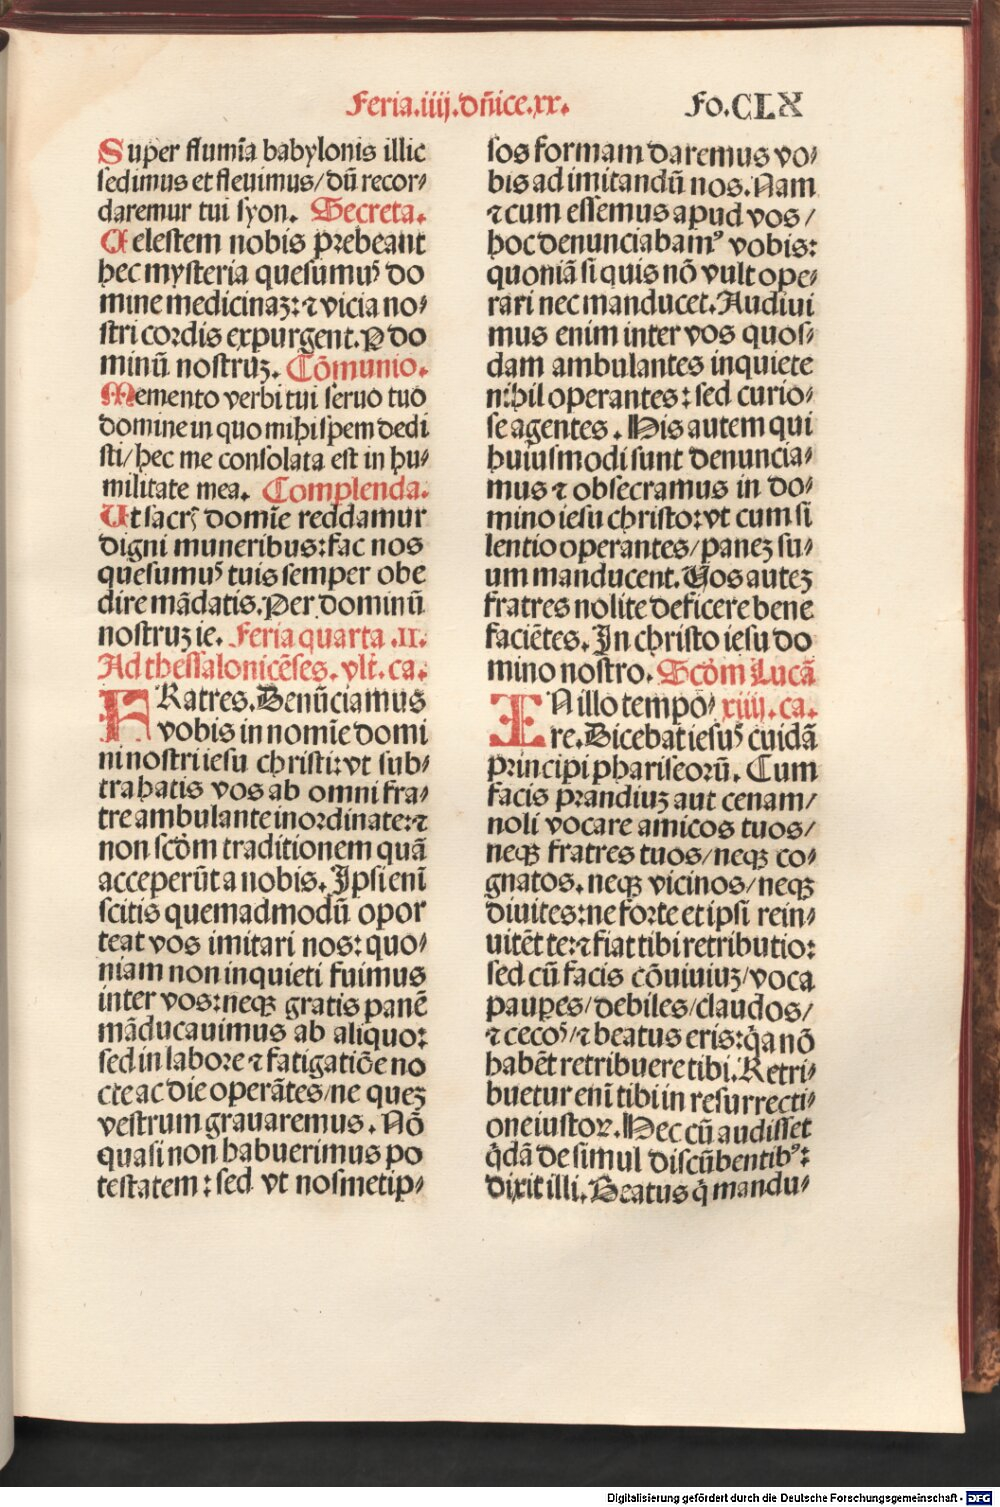 Feria.iiij.dñice.xx. Fo.CLX
Super flumĩa babylonis illic
sedimus et fleuimus/dũ recor⸗
daremur tui syon. Secreta.
Celestem nobis prebeant
hec mysteria quesumuꝰ do
mine medicinaꝫ:⁊ vicia no⸗
stri cordis expurgent. P do
minũ nostruꝫ. Cõmunio.
Memento verbi tui seruo tuo
domine in quo mihi spem dedi
sti/hec me consolata est in hu⸗
militate mea. Complenda.
Ut sacrꝭ domĩe reddamur
digni muneribus:fac nos
quesumuꝰ tuis semper obe
dire mãdatis. Per dominũ
nostruꝫ ie. Feria quarta .II.
Ad thessalonicẽses. vlt̃. ca.
FRatres. Denũciamus
vobis in nomĩe domi
ni nostri iesu christi:vt sub⸗
trahatis vos ab omni fra⸗
tre ambulante inordinate:⁊
non scd̓m traditionem quã
acceperũt a nobis. Ipsi enĩ
scitis quemadmodũ opor
teat vos imitari nos: quo⸗
niam non inquieti fuimus
inter vos:neqꝫ gratis panẽ
mãducauimus ab aliquo:
sed in labore ⁊ fatigatiõe no
cte ac die operãtes/ne queꝫ
vestrum grauaremus. Nõ
quasi non habuerimus po
testatem: sed vt nosmetip⸗
sos formam daremus vo⸗
bis ad imitandũ nos. Nam
⁊ cum essemus apud vos/
hoc denunciabamꝰ vobis:
quoniã si quis nõ vult ope⸗
rari nec manducet. Audiui
mus enim inter vos quos⸗
dam ambulantes inquiete
nihil operantes: sed curio⸗
se agentes. His autem qui
huiusmodi sunt denuncia⸗
mus ⁊ obsecramus in do⸗
mino iesu christo:vt cum si
lentio operantes/paneꝫ su⸗
um manducent. Vos auteꝫ
fratres nolite deficere bene
faciẽtes. In christo iesu do
mino nostro. Scd̓m Lucã
IN illo tempo⸗ xiiij. ca.
re. Dicebat iesuꝰ cuidã
principi phariseorũ. Cum
facis prandiuꝫ aut cenam/
noli vocare amicos tuos/
neqꝫ fratres tuos/neqꝫ co⸗
gnatos. neqꝫ vicinos/neqꝫ
diuites:ne forte et ipsi rein⸗
uitẽt te:⁊ fiat tibi retributio:
sed cũ facis cõuiuiuꝫ/voca
pauꝑes/debiles/claudos/
⁊ cecoꝰ/⁊ beatus eris:q̇a nõ
habẽt retribuere tibi. Retri⸗
buetur enĩ tibi in resurrecti⸗
one iustoꝝ. Hec cũ audisset
q̇dã de simul discũbentibꝰ:
dixit illi. Beatus q̇ mandu⸗
Digitalisierung gefördert durch die Deutsche Forschungsgemeinschaft - DFG